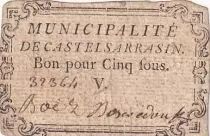 MUNICIPALITÉ
DE CASTELSARRASIN.
Bon pour Cinq sous.
32364 V.